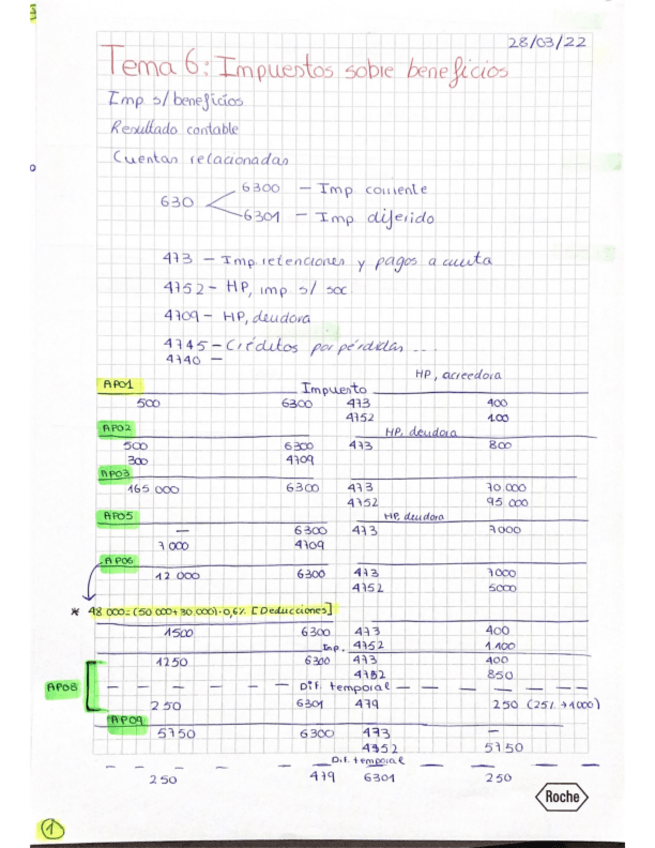 28/03/22
Tema 6: Impuestos sobre beneficios
Imp s/beneficios
Resultado contable
Cuentas relacionadas
630
6300 - Imp corriente
6301 - Imp diferido
473 - Imp. retenciones y pagos a cuenta
4752 - HP, imp s/ soc
4709 - HP, deudora
4745 - Créditos por pérdidas ...
4740 -
HP, acreedora
AP01 Impuesto
500 6300 473 400
4752 100
AP02 HP, deudora
500 6300 473 800
300 4709
AP03
165 000 6300 473 70.000
4752 95 000
AP05 HP, deudora
— 6300 473 7000
7 000 4709
AP06
12 000 6300 473 7000
4752 5000
* 48 000 = (50 000 + 30 000) · 0,6% [Deducciones]
1500 6300 473 400
Imp. 4752 1.100
1250 6300 473 400
4752 850
AP08 Dif. temporal
250 6301 479 250 (25% → 1000)
AP09
5750 6300 473 —
4752 5750
Dif. temporal
250 479 6301 250
Roche
1